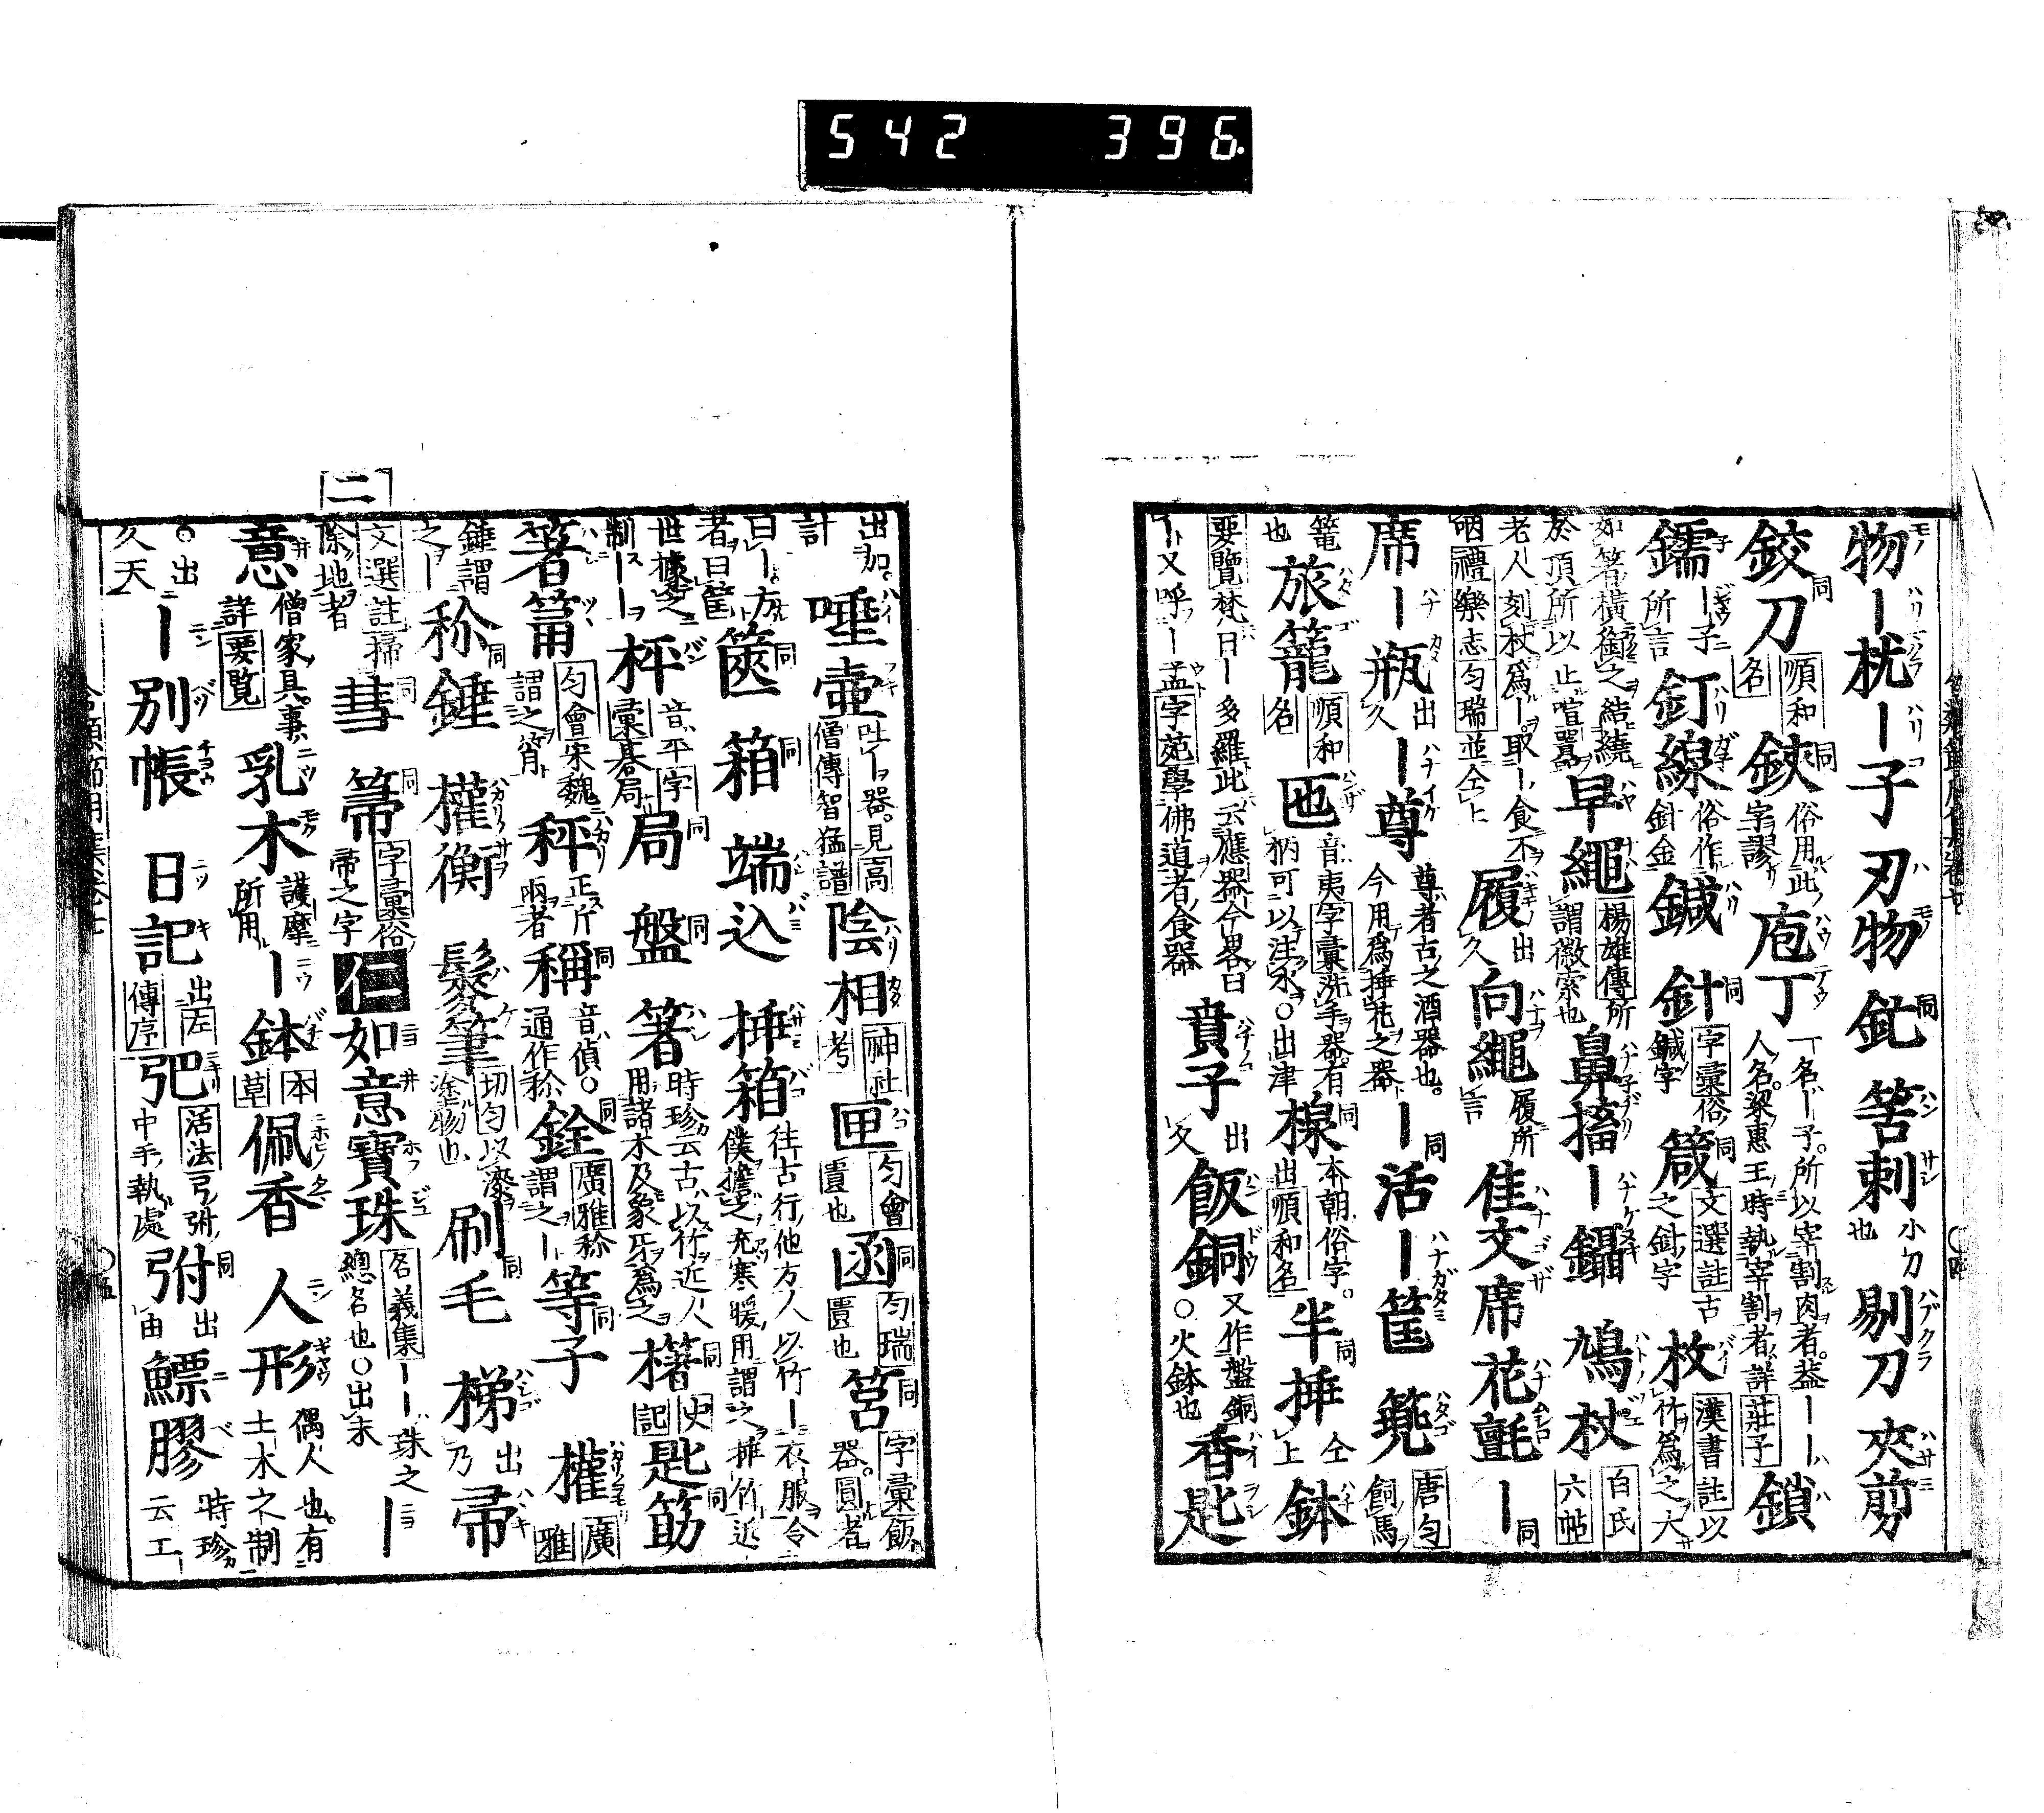 542 396
物ー枕ー子 刃物 釓 笞刺 小刀也 剔刀 夾剪
鉸刀 順和名 鋏 俗用此字謬 庖丁 丁名ー子所以宰割肉者蓋ーー人名梁惠王時執宰割者詳莊子 鎖
鑐ー子所言 釘 線 俗作針金 鍼 針 字彙俗鍼字 箴 文選註古之針字 枚 漢書註以竹爲之大
如箸橫銜之結繞於頂所以止喧嚻 早繩 楊雄傳所謂徽索也 鼻搐ー鑷 鳩杖 白氏六帖
老人刻杖爲ー取ー食不咽禮樂志勻瑞並仝上 履 出久 向繩 履所言 佳文席 花氈ー
席ー瓶 出久ー尊 尊者古之酒器也今用爲揷花之器ー活ー筐 篼 唐勻飼馬
篭也 旅籠 順和名 匜 音夷字彙洗手器有柄可以注水○出津 楾 本朝俗字出順和名 半揷 仝上 鉢
要覽梵曰ー多羅此云應器今畧曰ート又呼ー盂字苑學佛道者食器 賁子 出久 飯銅 又作盤銅○火鉢也 香匙
出加計 唾壷 吐ー器見高僧傳智猛譜 陰相 神社考 匣 勻會匱也 函 勻瑞匱也 筥 字彙飯器圓者
曰ー方者曰筐 篋 箱 端込 揷箱 往古行他方人以竹ー衣服令僕擔之充寒暖用謂之揷竹近
世據之制ーー 枰 音平字彙碁局 局 盤 箸 時珍云古以竹近人用諸木及象牙爲之 櫡 史記 匙筯
箸筩 勻會宋魏謂之筲 秤 正斤兩者 稱 音偵○通作秤 銓 廣雅称謂之ー 等子 權 廣雅
錘謂之ー 称錘 權衡 髹筆 切勻以漆塗物也 刷毛 梯 出乃 帚
文選註掃除地者 彗 箒 字彙俗帚之字 仁 如意寶珠 名義集ーー珠之總名也○出末ー
二
意 僧家具事詳要覧 乳木 護摩所用ー鉢 本草 佩香 人形 偶人也有土木之制
○出久天ー別帳 日記 出左傳序 弝 活法弓弣中手執處 弣 出由 鰾膠 時珍云工